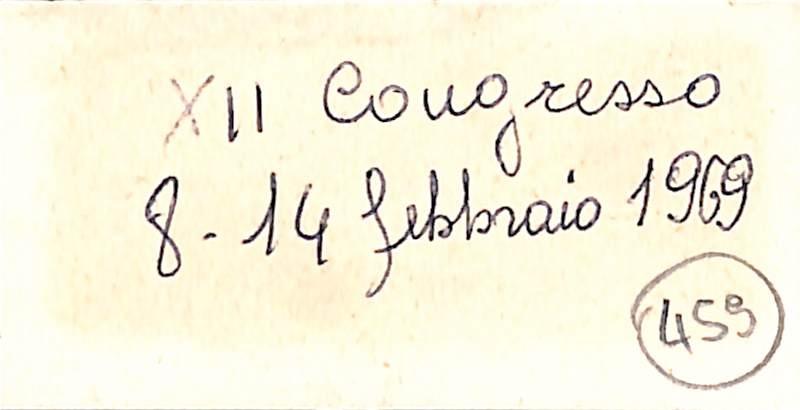 XII Congresso
8-14 febbraio 1969
459